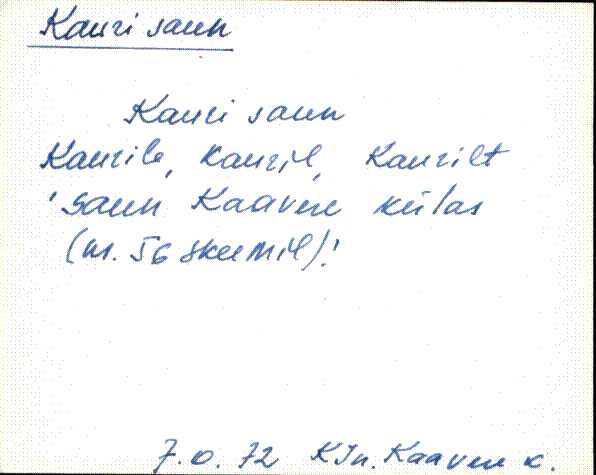 Kauri saun
Kauri saun
Kaurile, Kauril, Kaurilt
'Saun Kaavere külas
(nr. 56 skeemil)!
7.0.72 KJn. Kaavere k.